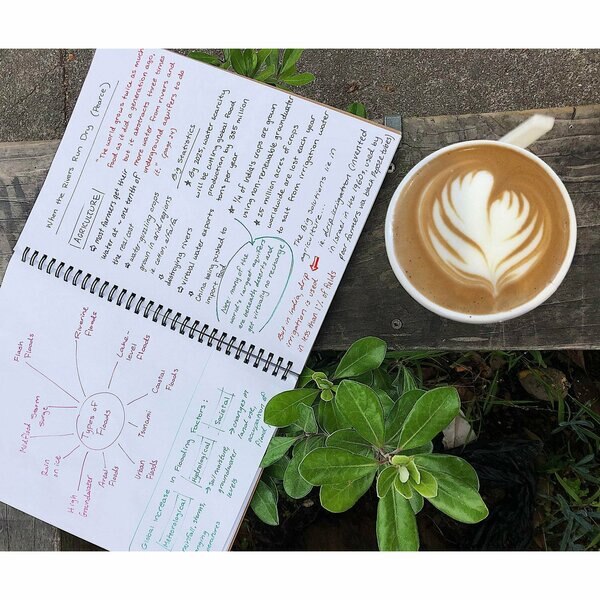 When the Rivers Run Dry (Pearce)
"The world grows twice as much
food as it did a generation ago,
but it abstracts three times
more water from rivers and
underground aquifers to do
it."
AGRICULTURE
★ most farmers get their
water at < one tenth of
the real cost
★ water-guzzling crops
grown in arid regions
i.e. cotton, alfalfa
destroying rivers
★ virtual water exports
China being pushed to
import by
Big Statistics
★ By 2025, water scarcity
will be cutting global food
production by 385 million
tons per year
★ 1/4 of India's crops are grown
using non-renewable groundwater
★ 25 million acres of crops
worldwide are lost each year
to salt from irrigation water
Note: some of the
world's largest aquifers
are beneath deserts and
get virtually no recharge
The Big Solutions lie in
agriculture...
drip irrigation (invented
in Israel in the 1960s, used by
poor farmers via
But in India, drip
irrigation is used
in less than 1% of fields
Types of
Floods
Flash
Floods
Riverine
Floods
Lake-
level
Floods
Coastal
Floods
Tsunami
Urban
Floods
Areal
Floods
High
Groundwater
Rain
on ice
Storm
Surge
Global Increase in Flooding Factors:
Hydrological
Societal
→ changes in
land use,
→ Soil moisture
groundwater
levels
rainfall, storms,